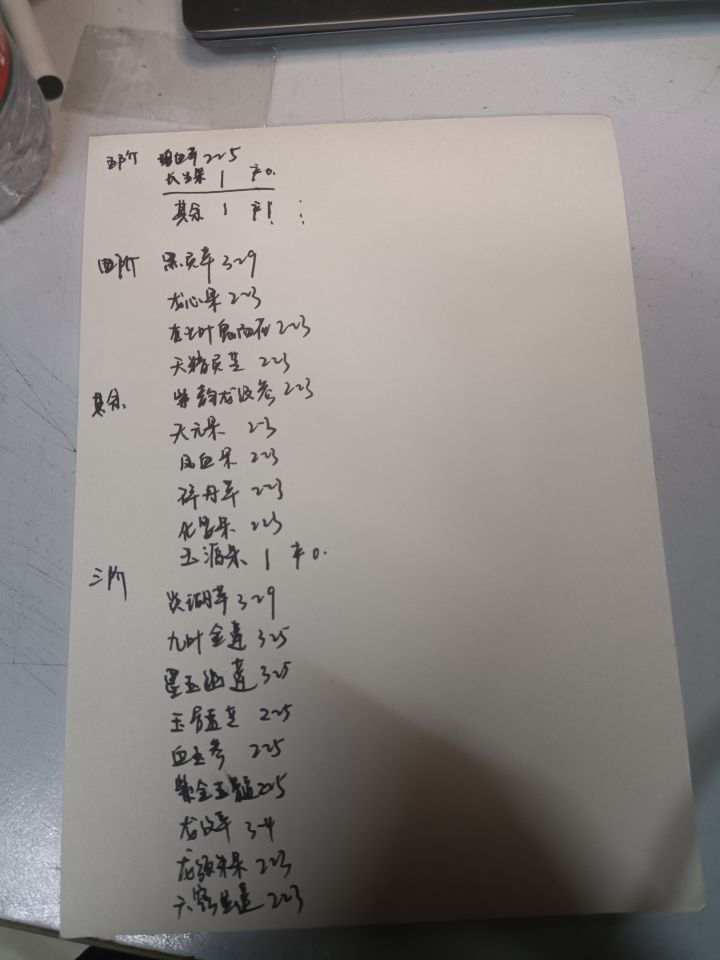 五阶 碧血草 2~5
长生果 1 产0.
其余 1 产1
四阶 黑灵草 3~9
龙心果 2~3
七叶鬼面花 2~3
天精灵芝 2~3
其余 紫韵龙皮参 2~3
天元果 2~3
凤血果 2~3
碎丹草 2~3
化婴果 2~3
玉源果 1 产0.
三阶
炎瑚草 3~9
九叶金莲 3~5
星玉幽莲 3~5
玉髓芝 2~5
血玉参 2~5
紫金玉髓 2~5
龙纹草 3~4
龙须朱果 2~3
莲 2~3